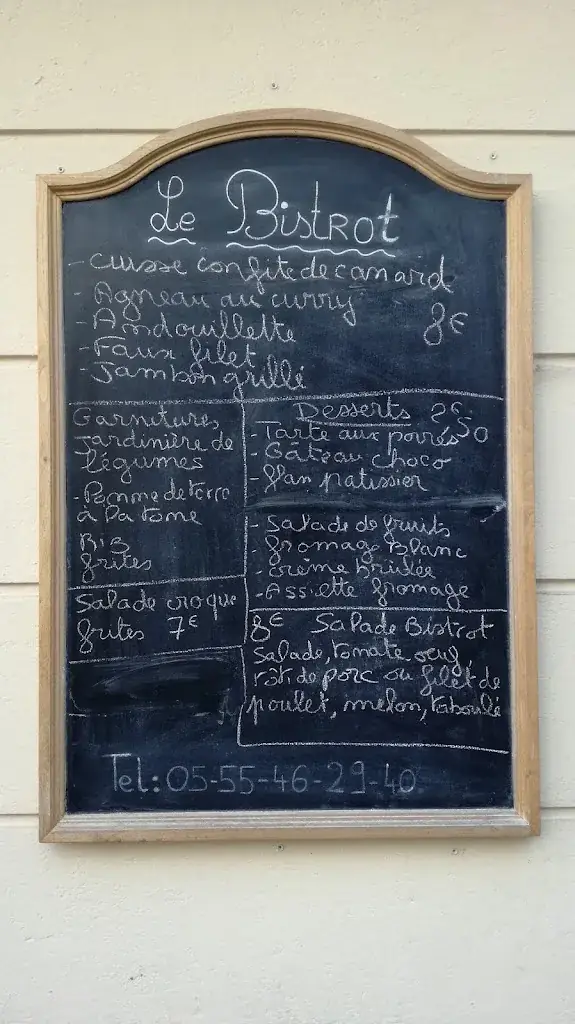 Le Bistrot
- Cuisse confite de canard
- Agneau au curry
- Andouillette
8€
- Faux filet
- Jambon grillé
Garnitures
Jardinière de
légumes
- Pomme de terre
à la tome
Riz
frites
Salade croque
frites 7€
Desserts 2€50
- Tarte aux poires
- Gâteau choco
- flan patissier
- Salade de fruits
- fromage Blanc
- Crème Brûlée
- Assiette fromage
8€ Salade Bistrot
Salade, tomate, oeuf,
roti de porc ou filet de
poulet, melon, taboulé
Tel: 05-55-46-29-40